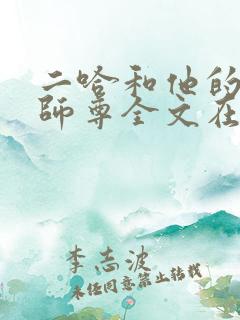 二哈和他的
師尊全文在
李志波
未经同意禁止转载